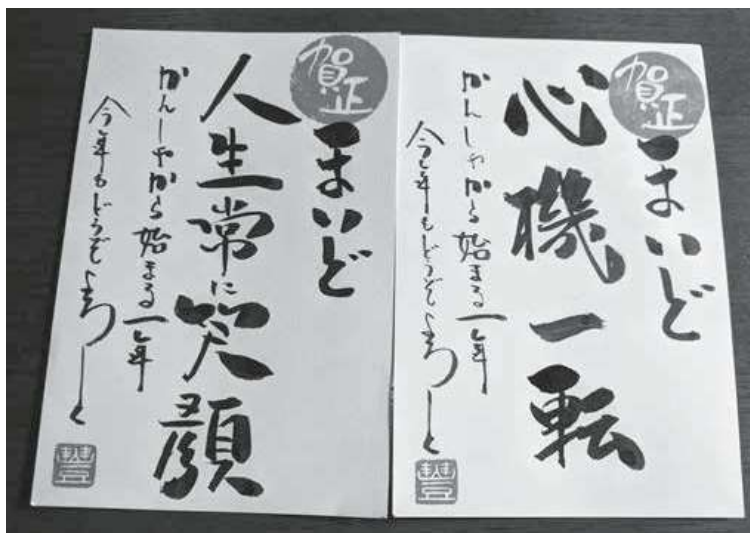 賀正
まいど
心機一転
かんしゃから始まる一年
今年もどうぞよろしく
賀正
まいど
人生常に笑顔
かんしゃから始まる一年
今年もどうぞよろしく